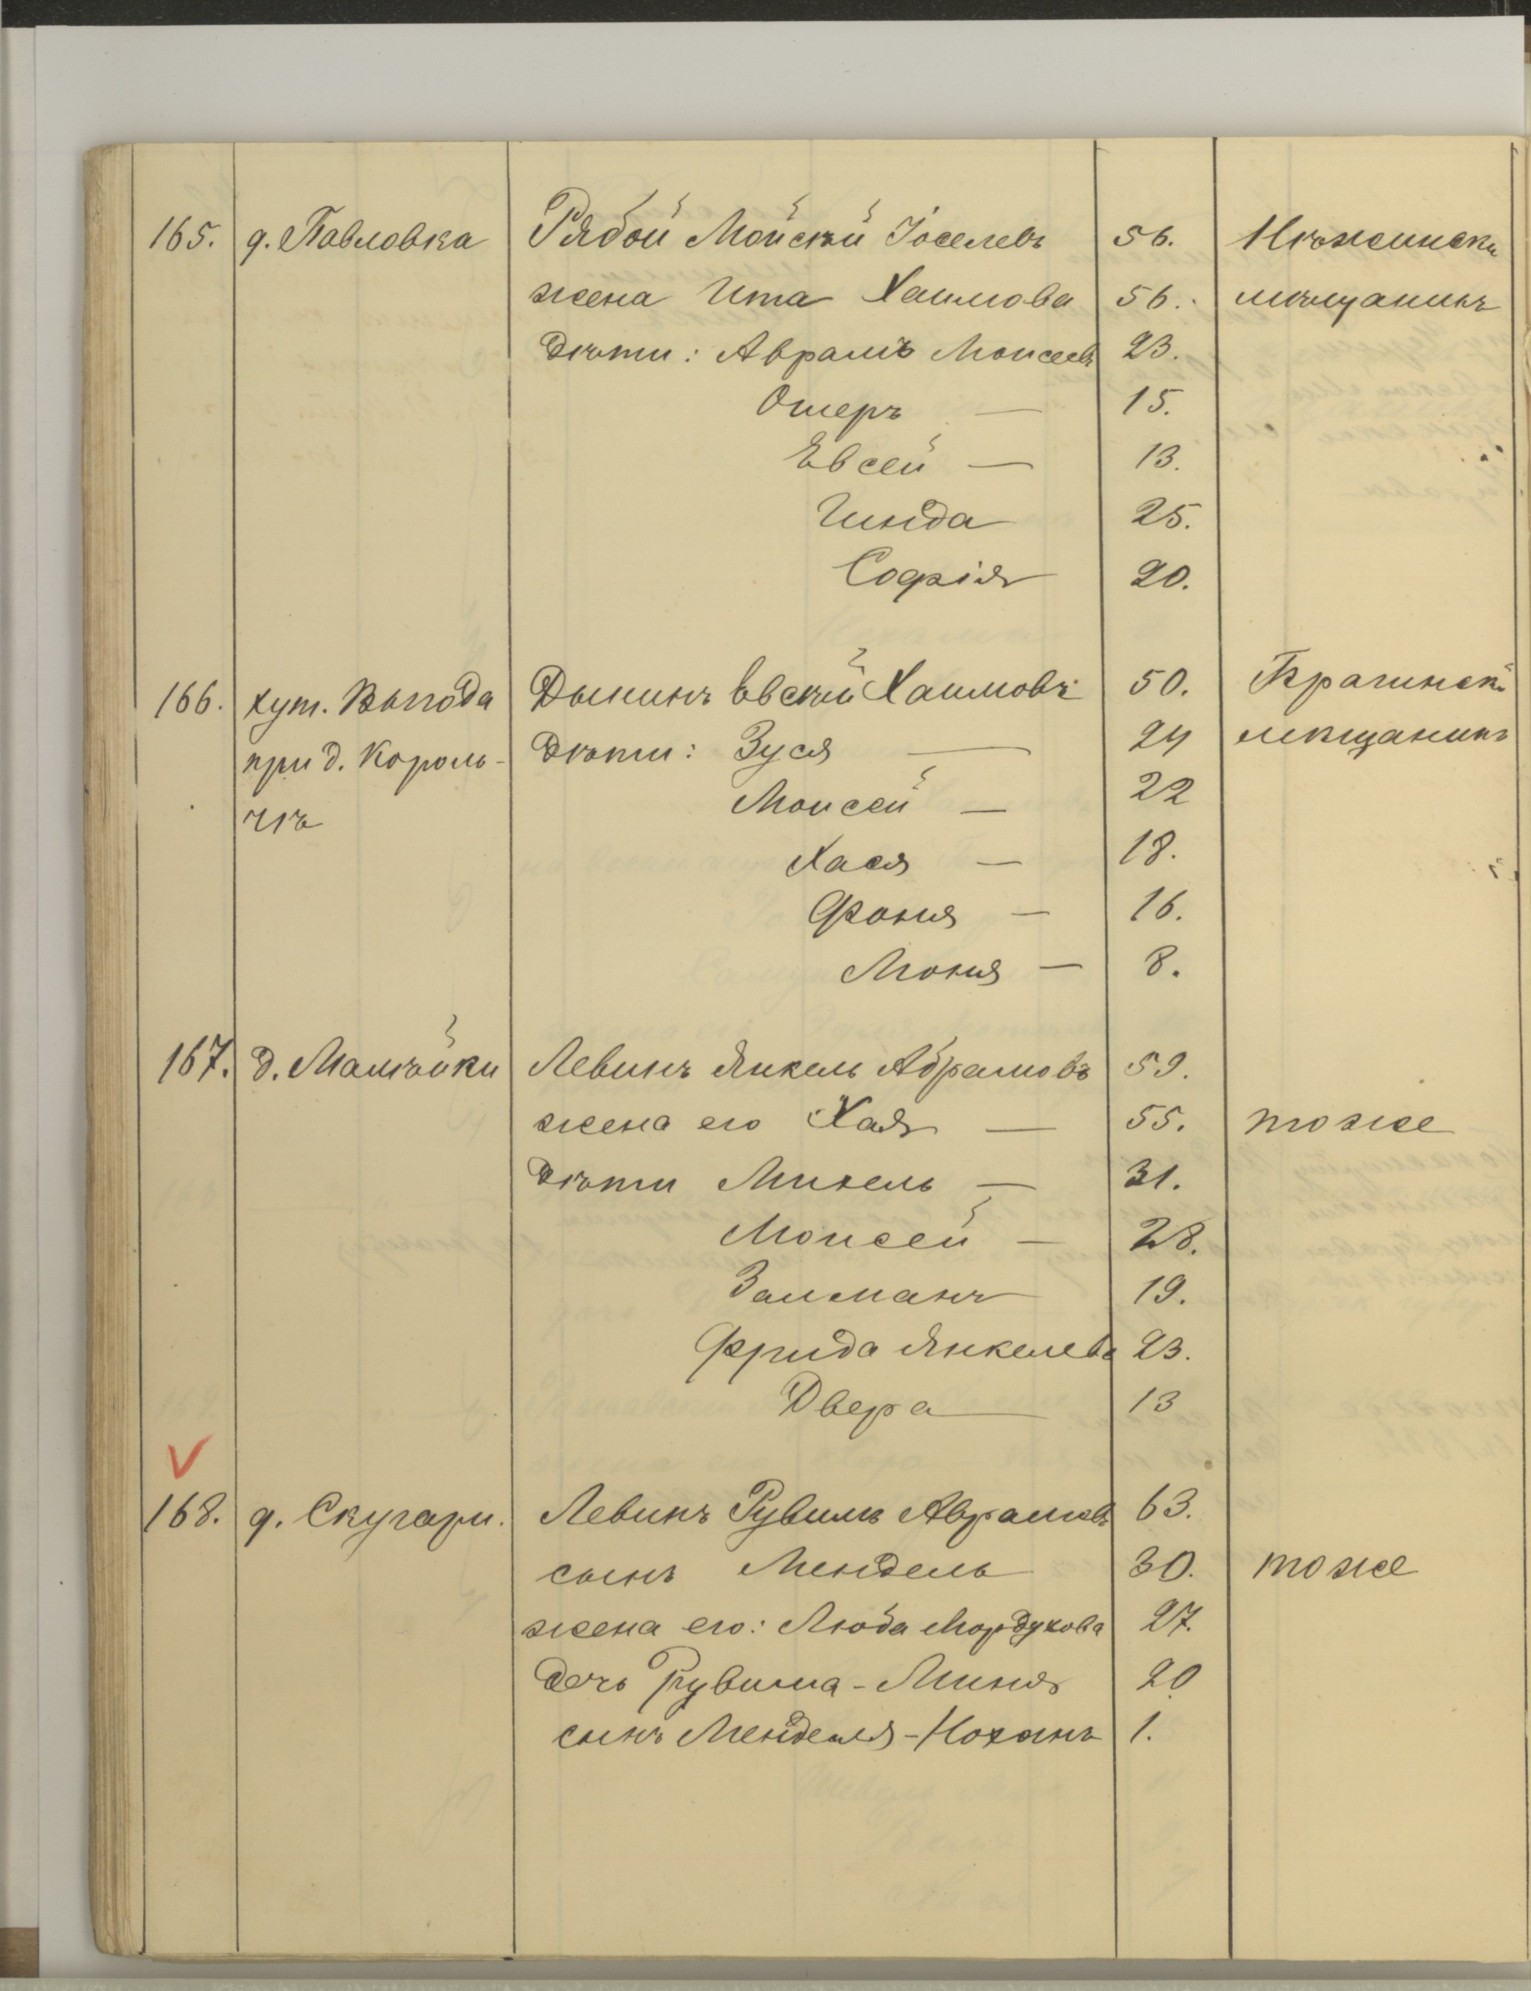 165. д. Павловка Рябой Мойсѣй Іоселевъ 56. Нѣжинскій
жена Ита Хаимова 56. мѣщанинъ
Дѣти: Аврамъ Моисеевъ 23.
Ошеръ — 15.
Евсей — 13.
Гинда 25.
Софія 20.
166. хут. Выгода Дынинъ Евсѣй Хаимовъ 50. Брагинскій
при д. Король- Дѣти: Зуся — 24 мѣщанинъ
чѣ Моисей — 22
Хася — 18.
Фаня — 16.
Моня — 8.
167. д. Малѣйки Левинъ Янкель Абрамовъ 59.
жена его Хая — 55. тоже
Дѣти Михель — 31.
Моисей — 28.
Залманъ 19.
Фрида Янкелева 23.
Двера 13
V
168. д. Скугари. Левинъ Рувимъ Аврамовъ 63.
сынъ Мендель 30. тоже
жена его: Люба Мордухова 27.
дочь Рувима - Миня 20
сынъ Менделя -Ноханъ 1.